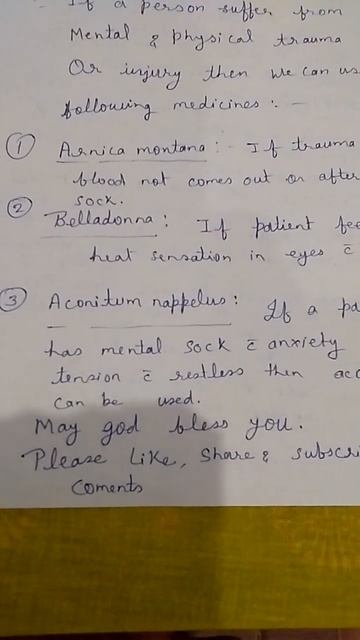 If a person suffer from
Mental & physical trauma
Or injury then we can us
following medicines : -
① Arnica montana : - If trauma
blood not comes out or after
sock.
② Belladonna : If patient fee
heat sensation in eyes c̄
③ Aconitum nappelus : If a pa
has mental sock c̄ anxiety
tension c̄ restless then aco
can be used.
May god bless you.
Please Like, Share & subscri
Coments